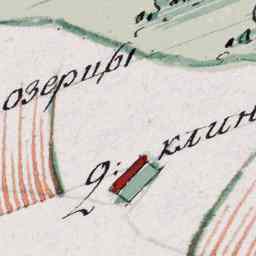 озерцы
2: клин